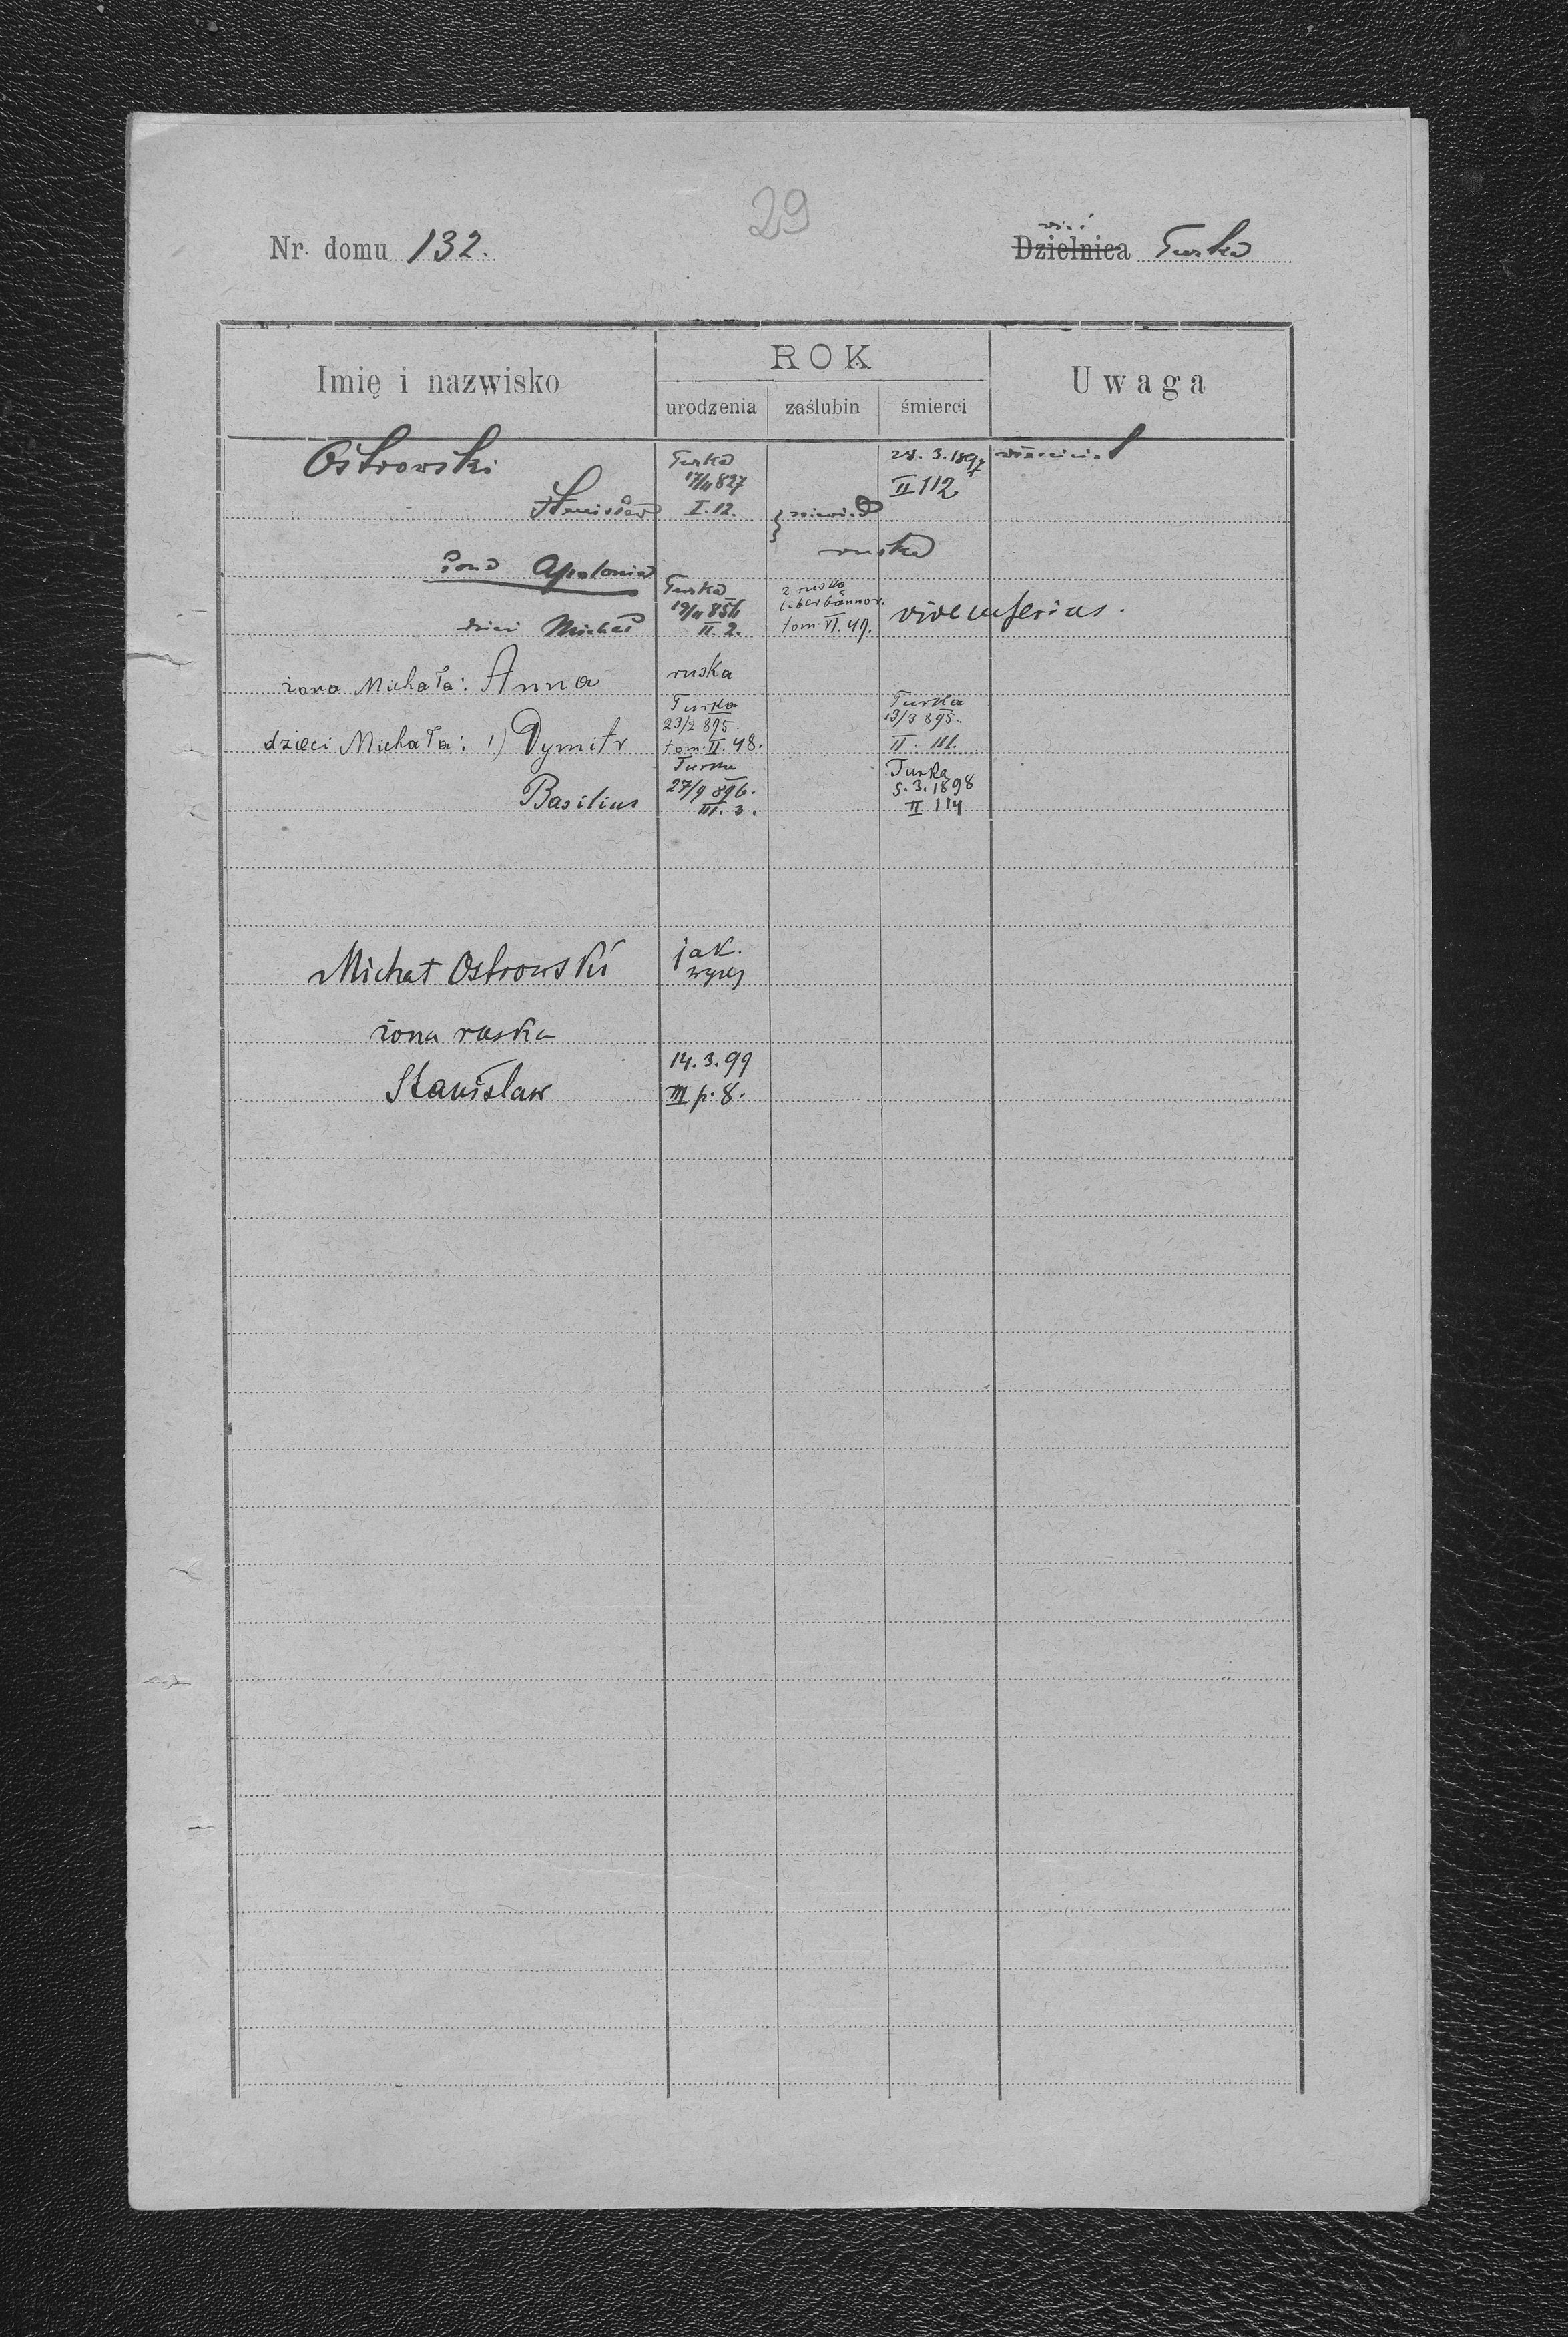 29
Nr. domu 132.
wieś
Dzielnica Turka
Imię i nazwisko
ROK
urodzenia zaślubin śmierci
Uwaga
Ostrowski
Turka
17/11 827
I. 12.
28. 3. 1897
II 112
Stanisław
ruska
żona Apolonia
dzieci Michał
Turka
19/11 856
II. 2.
z ruską
liber bannor.
tom. VI. 49.
vide inferius.
żona Michała: Anna
ruska
dzieci Michała: 1) Dymitr
Turka
23/2 895
tom. II. 48.
Turka
13/3 895.
II. 111.
Basilius
Turka
27/9 896.
III. 3.
Turka
5. 3. 1898
II 114
Michał Ostrowski
jak.
wyżej
żona ruska
Stanisław
14. 3. 99
III p. 8.